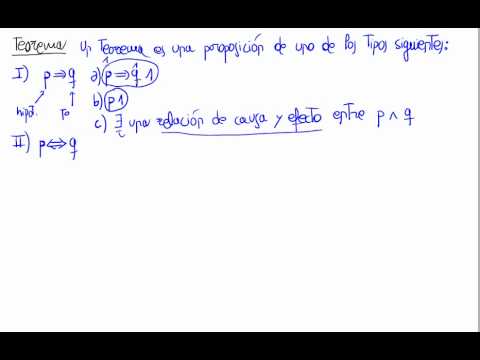 Teorema Un Teorema es una proposición de uno de los Tipos siguientes:
I) p⇒q a) p⇒q 1
1
hipót. Te b) p 1
c) ∃ una relación de causa y efecto entre p ∧ q
II) p⇔q